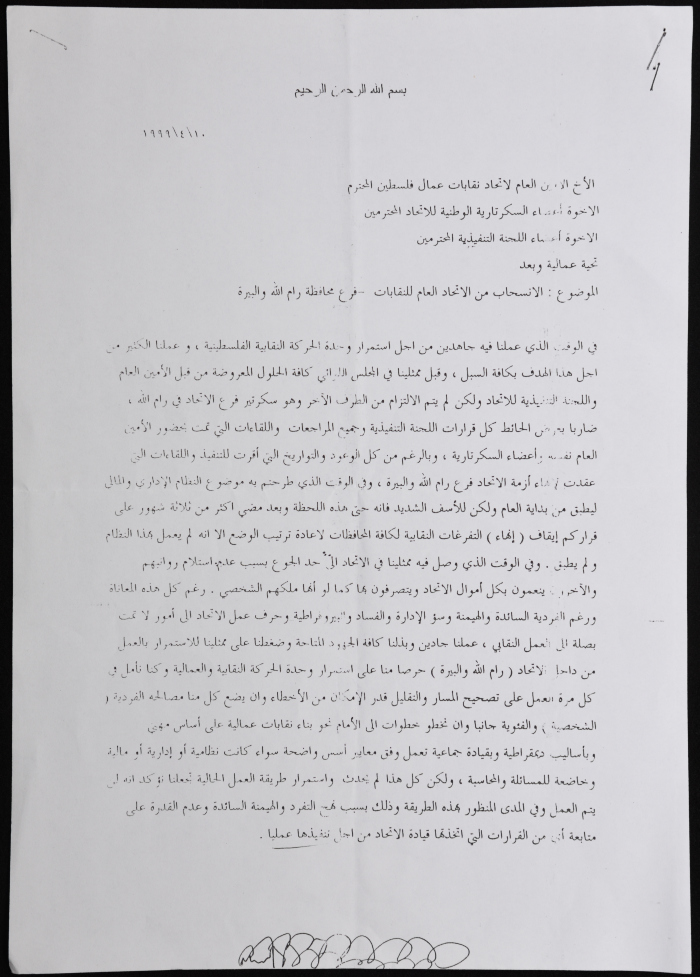 بسم الله الرحمن الرحيم
١٩٩٩/٤/١٠
الأخ الامين العام لاتحاد نقابات عمال فلسطين المحترم
الاخوة أعضاء السكرتارية الوطنية للاتحاد المحترمين
الاخوة أعضاء اللجنة التنفيذية المحترمين
تحية عمالية وبعد
الموضوع : الانسحاب من الاتحاد العام للنقابات – فرع محافظة رام الله والبيرة
في الوقت الذي عملنا فيه جاهدين من اجل استمرار وحدة الحركة النقابية الفلسطينية ، و عملنا الكثير من
اجل هذا الهدف بكافة السبل ، وقبل ممثلينا في المجلس اللوائي كافة الحلول المعروضة من قبل الأمين العام
واللجنة التنفيذية للاتحاد ولكن لم يتم الالتزام من الطرف الآخر وهو سكرتير فرع الاتحاد في رام الله ،
ضاربا بعرض الحائط كل قرارات اللجنة التنفيذية وجميع المراجعات واللقاءات التي تمت بحضور الأمين
العام نفسه وأعضاء السكرتارية ، وبالرغم من كل الوعود والتواريخ التي أقرت للتنفيذ واللقاءات التي
عقدت لإنهاء أزمة الاتحاد فرع رام الله والبيرة ، وفي الوقت الذي طرحتم به موضوع النظام الإداري والمالي
ليطبق من بداية العام ولكن للأسف الشديد فانه حتى هذه اللحظة وبعد مضي اكثر من ثلاثة شهور على
قراركم إيقاف ( إنهاء ) التفرغات النقابية لكافة المحافظات لاعادة ترتيب الوضع الا انه لم يعمل بهذا النظام
ولم يطبق . وفي الوقت الذي وصل فيه ممثلينا في الاتحاد الى حد الجوع بسبب عدم استلام رواتبهم
والآخرون ينعمون بكل أموال الاتحاد ويتصرفون بها كما لو أنها ملكهم الشخصي . رغم كل هذه المعاناة
ورغم الفردية السائدة والهيمنة وسؤ الإدارة والفساد والبيروقراطية وحرف عمل الاتحاد الى أمور لا تمت
بصلة الى العمل النقابي ، عملنا جادين وبذلنا كافة الجهود المتاحة وضغطنا على ممثلينا للاستمرار بالعمل
من داخل الاتحاد ( رام الله والبيرة ) حرصا منا على استمرار وحدة الحركة النقابية والعمالية وكنا نأمل في
كل مرة العمل على تصحيح المسار والتقليل قدر الإمكان من الأخطاء وان يضع كل منا مصالحه الفردية (
الشخصية ) والفئوية جانبا وان نخطو خطوات الى الأمام نحو بناء نقابات عمالية على أساس مهني
وبأساليب ديمقراطية وبقيادة جماعية تعمل وفق معايير أسس واضحة سواء كانت نظامية أو إدارية أو مالية
وخاضعة للمسائلة والمحاسبة ، ولكن كل هذا لم يحدث واستمرار طريقة العمل الحالية تجعلنا نؤكد انه لن
يتم العمل وفي المدى المنظور بهذه الطريقة وذلك بسبب نهج التفرد والهيمنة السائدة وعدم القدرة على
متابعة أي من القرارات التي اتخذتها قيادة الاتحاد من اجل تنفيذها عمليا .